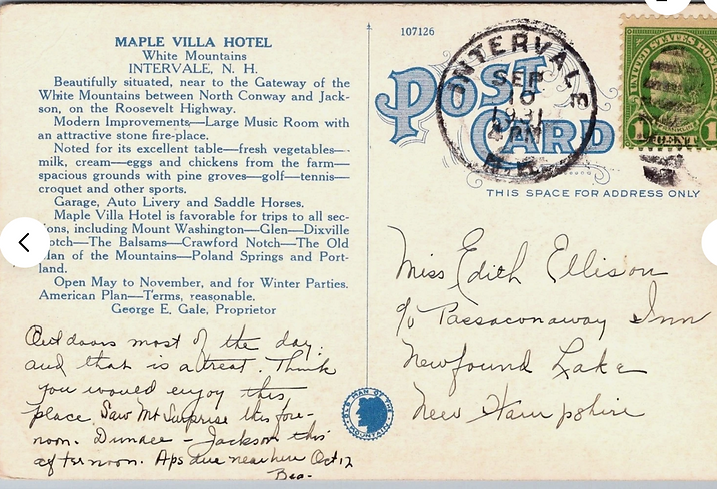 MAPLE VILLA HOTEL
White Mountains
INTERVALE, N. H.
Beautifully situated, near to the Gateway of the
White Mountains between North Conway and Jack-
son, on the Roosevelt Highway.
Modern Improvements—Large Music Room with
an attractive stone fire-place.
Noted for its excellent table—fresh vegetables—
milk, cream—eggs and chickens from the farm—
spacious grounds with pine groves—golf—tennis—
croquet and other sports.
Garage, Auto Livery and Saddle Horses.
Maple Villa Hotel is favorable for trips to all sec-
ions, including Mount Washington—Glen—Dixville
otch—The Balsams—Crawford Notch—The Old
an of the Mountains—Poland Springs and Port-
land.
Open May to November, and for Winter Parties.
American Plan—Terms, reasonable.
George E. Gale, Proprietor
Out doors most of the day:
and that is a treat. Think
you would enjoy this
place. Saw Mt Surprise this fore-
noon. Dundee - Jackson this
afternoon. Aps due near here Oct 12
Bea-
OLD MAN OF THE MOUNTAIN
107126
POST CARD
INTERVALE
SEP
10
1931
4 PM
N.H.
UNITED STATES POS
1 FRANKLIN 1
THIS SPACE FOR ADDRESS ONLY
Miss Edith Ellison
c/o Passaconaway Inn
Newfound Lake
New Hampshire